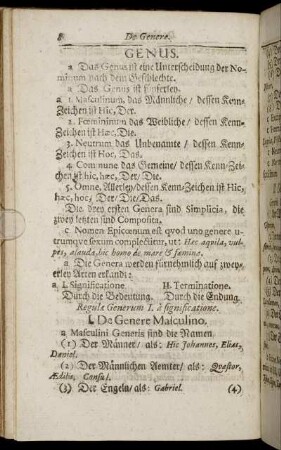 8 De Genere.
GENUS.
a Das Genus ist eine Unterscheidung der No-
minum nach dem Geschlechte.
a Das Genus ist fünferley.
a 1. Masculinum, das Männliche / dessen Kenn-
Zeichen ist Hic, Der.
2. Fœmininum das Weibliche / dessen Kenn-
Zeichen ist Hæc, Die.
3. Neutrum das Unbenante / dessen Kenn-
Zeichen ist Hoc, Das.
4. Commune das Gemeine / dessen Kenn-Zei-
chen ist hic, hæc, Der / Die.
5. Omne, Allerley / dessen Kenn-Zeichen ist Hic,
hæc, hoc, Der / Die / Das.
Die drey ersten Genera sind Simplicia, die
zwey letzten sind Composita.
c Nomen Epicœnum est quod uno genere u-
trumque sexum complectitur, ut: Hæc aquila, vul-
pes, alauda, hic homo de mare & fœmina.
a Die Genera werden fürnehmlich auf zweyer-
ley Arten erkundt:
a I. Significatione II. Terminatione.
Durch die Bedeutung. Durch die Endung.
Regulæ Generum I. à significatione.
I. De Genere Masculino.
a Masculini Generis sind die Namen.
(1) Der Männer / als: Hic Johannes, Elias,
Daniel.
(2) Der Männlichen Aemter / als: Quæstor,
Ædilis, Consul.
(3) Der Engeln / als: Gabriel. (4)